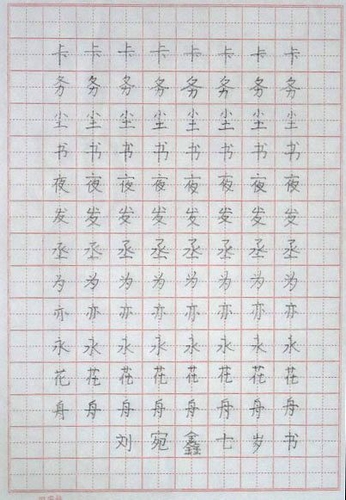 卡卡卡卡卡卡卡卡
务务务务务务务务
尘尘尘尘尘尘尘尘
书书书书书书书书
夜夜夜夜夜夜夜夜
发发发发发发发发
丞丞丞丞丞丞丞丞
为为为为为为为为
亦亦亦亦亦亦亦亦
永永永永永永永永
花花花花花花花花
舟舟舟舟舟舟舟舟
刘宛鑫七岁书